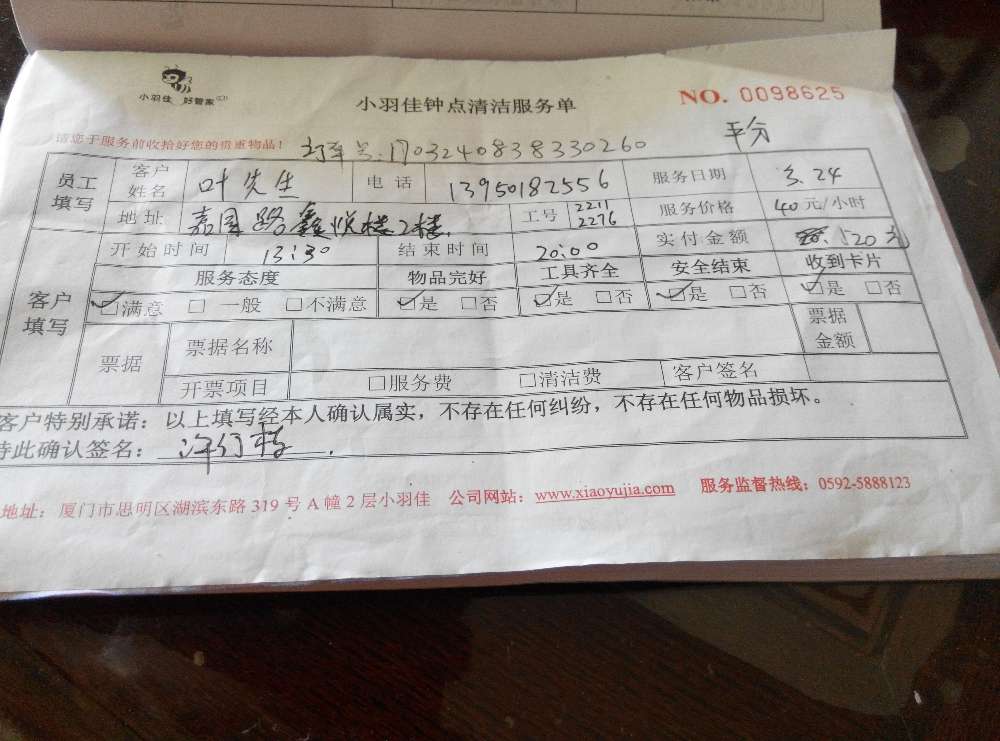 小羽佳 好管家
小羽佳钟点清洁服务单
NO. 0098625
请您于服务前收拾好您的贵重物品!
订单号:1703240838330260
平分
员工填写 客户姓名 叶先生 电话 13950182556 服务日期 3.24
地址 嘉园路鑫悦楼2楼. 工号 2211 2276 服务价格 40元/小时
开始时间 13:30 结束时间 20:00 实付金额 520元
客户填写 服务态度 物品完好 工具齐全 安全结束 收到卡片
☑满意 □ 一般 □不满意 ☑是 □否 ☑是 □否 ☑是 □否 ☑是 □否
票据 票据名称 票据金额
开票项目 □服务费 □清洁费 客户签名
客户特别承诺:以上填写经本人确认属实,不存在任何纠纷,不存在任何物品损坏。
特此确认签名:
地址:厦门市思明区湖滨东路 319 号 A 幢 2 层小羽佳 公司网站:www.xiaoyujia.com 服务监督热线:0592-5888123